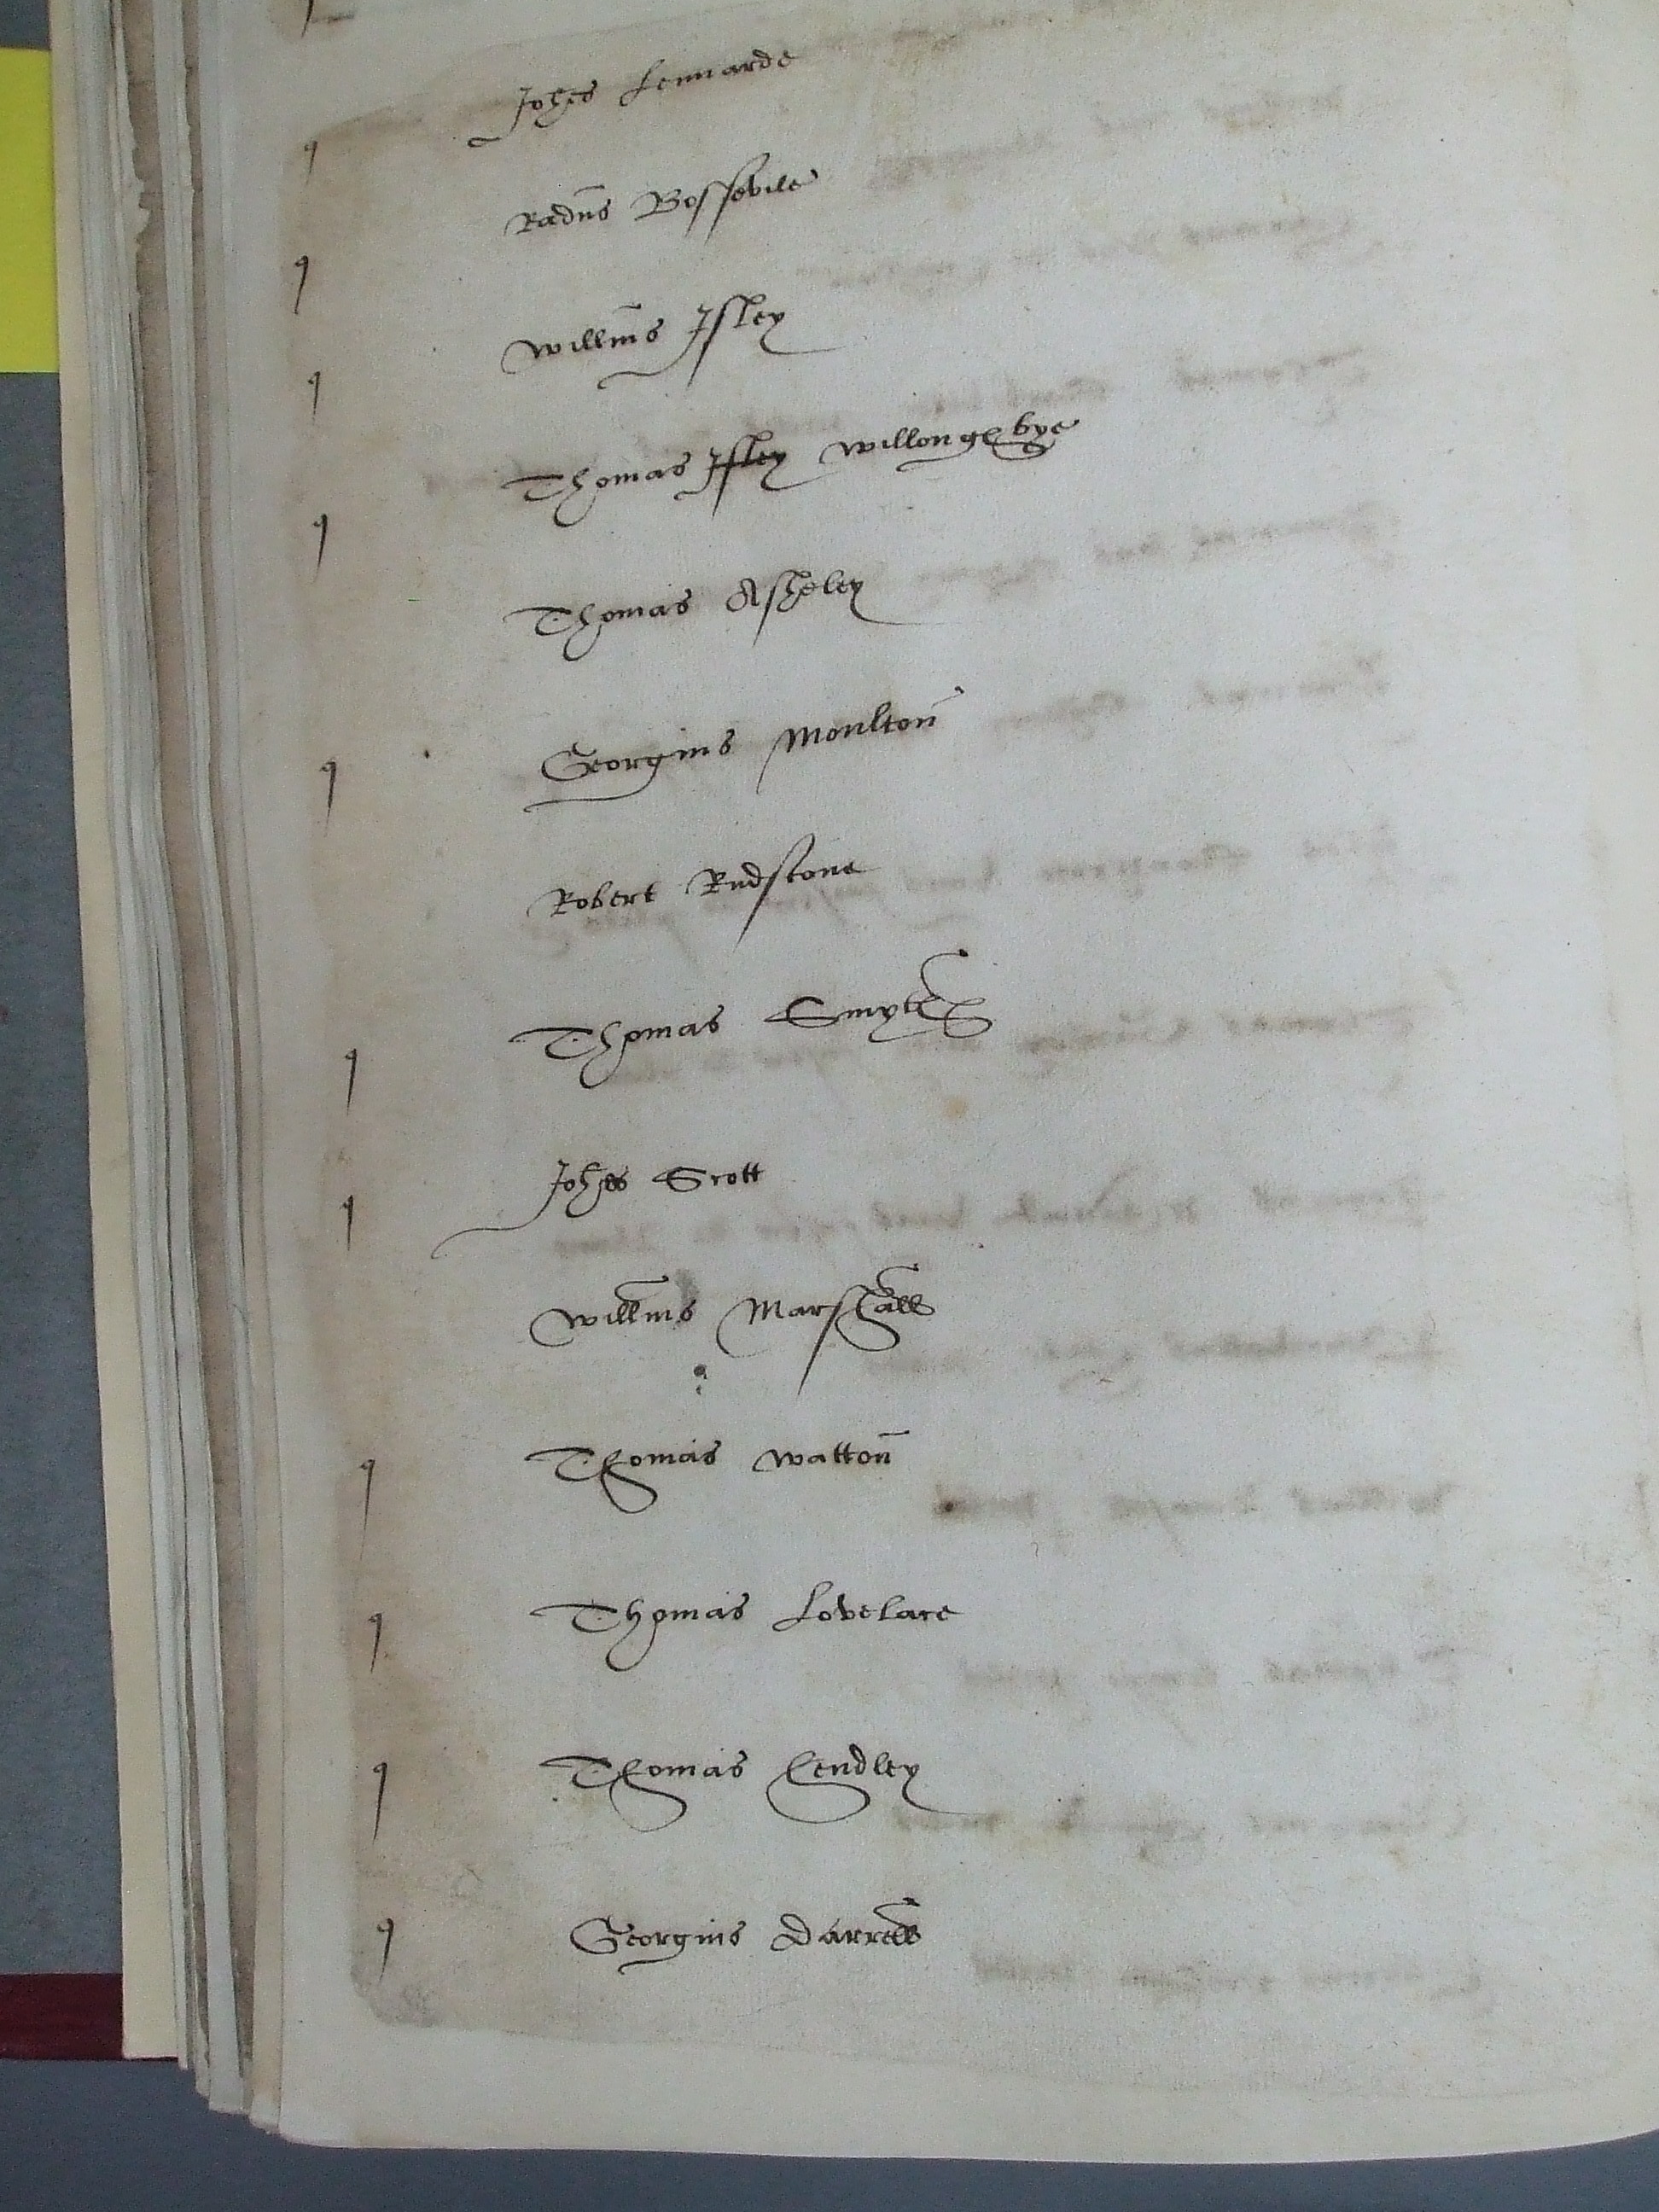 Johēs Lennarde
Radūs Bossevile
Willm̄s Isley
Thomas Isley Willonghbye
Thomas Asheley
Georgius Moulton̄
Robert Rudstone
Thomas Smyth
Johes Scott
Willm̄s Marshall
Thomas Watton̄
Thomas Lovelace
Thomas Hendley
Georgius Darrell